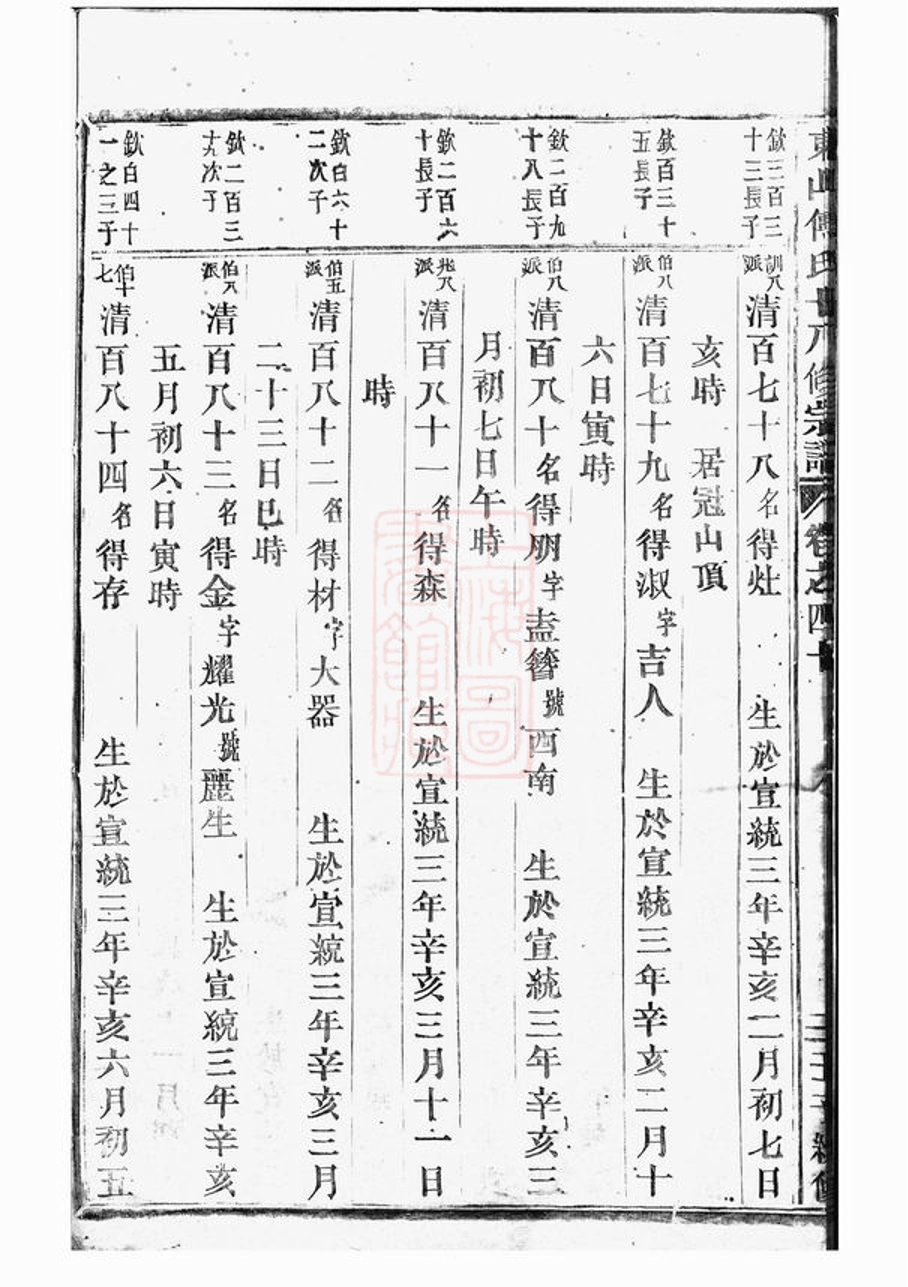 東山傅氏十八修宗譜 卷之四十
欽三百三
十三長子
訓八
派
清百七十八名得灶 生於宣統三年辛亥二月初七日
亥時 居冠山頂
欽百三十
五長子
伯八
派
清百七十九名得淑字吉人 生於宣統三年辛亥二月十
六日寅時
欽二百九
十八長子
伯八
派
清百八十名得朋字盍簪號西南 生於宣統三年辛亥三
月初七日午時
欽二百六
十長子
兆八
派
清百八十一名得森 生於宣統三年辛亥三月十一日
時
欽百六十
二次子
伯五
派
清百八十二名得材字大器 生於宣統三年辛亥三月
二十三日巳時
欽二百三
十九次子
伯八
派
清百八十三名得金字耀光號麗生 生於宣統三年辛亥
五月初六日寅時
欽百四十
一之三子
伯十
七
清百八十四名得存 生於宣統三年辛亥六月初五
上海圖
書館藏